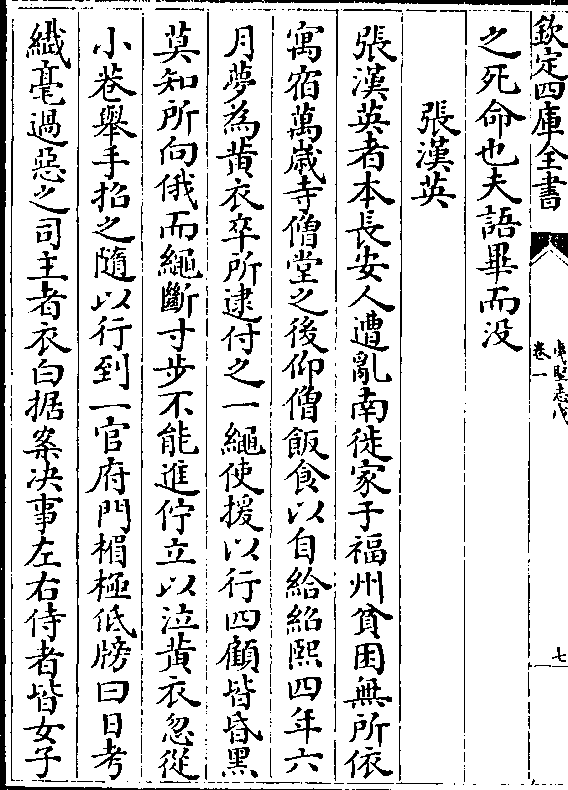 欽定四庫全書
夷堅志戊
卷一
七
之死命也夫語畢而没
張漢英
張漢英者本長安人遭亂南徙家于福州貧困無所依
寓宿萬嵗寺僧堂之後仰僧飯食以自給紹熙四年六
月夢為黄衣卒所逮付之一繩使援以行四顧皆昏黒
莫知所向俄而繩斷寸步不能進佇立以泣黄衣忽從
小巷舉手招之隨以行到一官府門楣極低牓曰日考
纎毫過惡之司主者衣白据案决事左右侍者皆女子